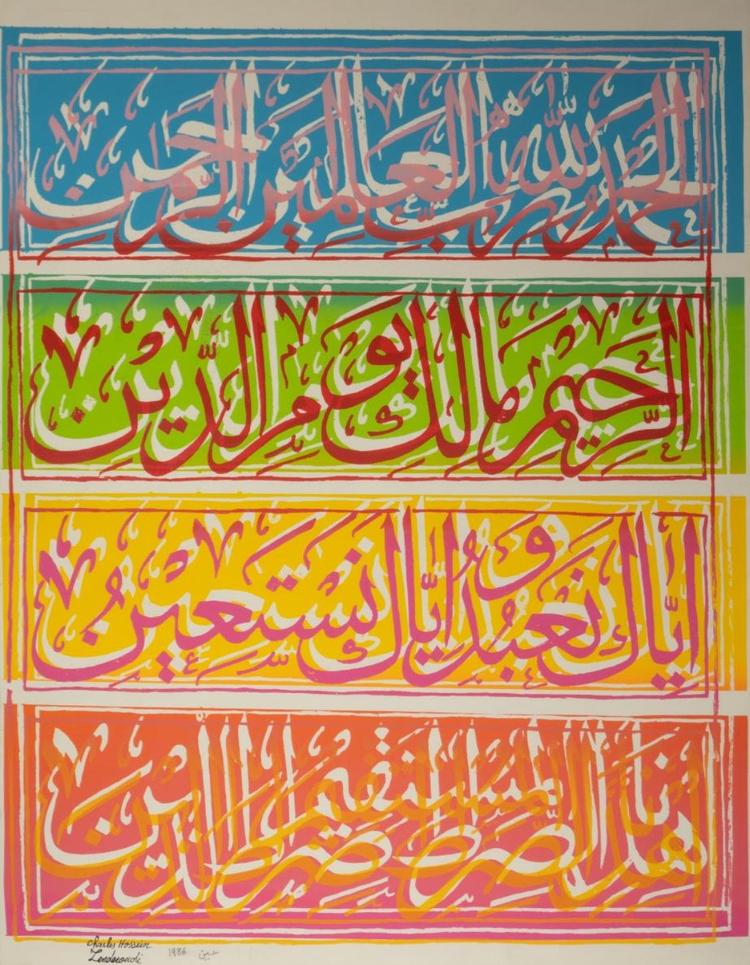 الحمد لله رب العالمين الرحمن
الرحيم مالك يوم الدين
اياك نعبد و اياك نستعين
اهدنا الصراط المستقيم صراط الذين
Charles Hossein
Zenderoudi 1986 حسين